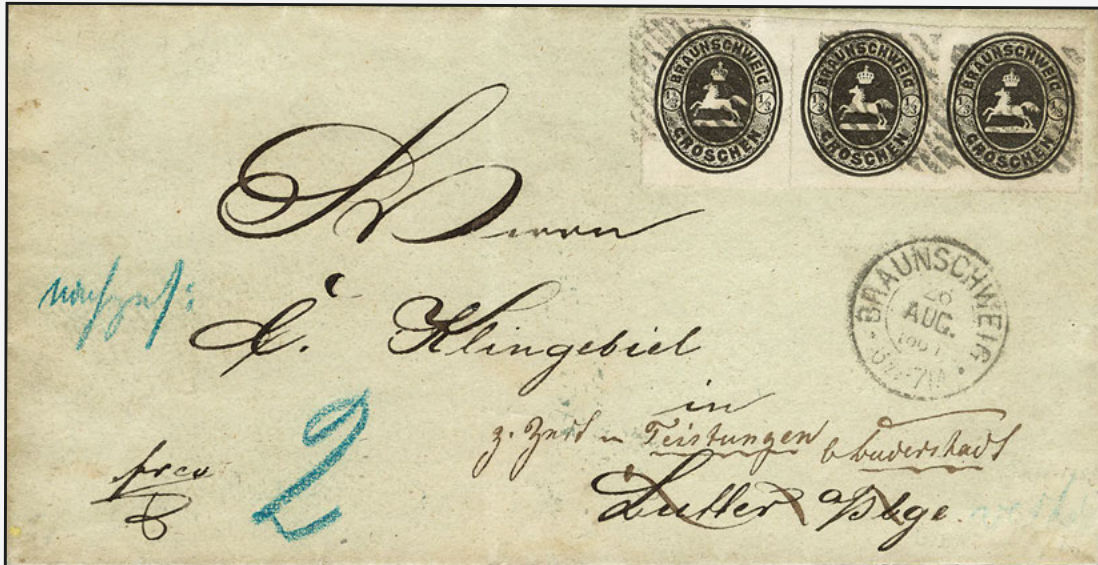 BRAUNSCHWEIG 1/3 1/3 GROSCHEN
BRAUNSCHWEIG 1/3 1/3 GROSCHEN
BRAUNSCHWEIG 1/3 1/3 GROSCHEN
BRAUNSCHWEIG
26
AUG.
Herrn
Klingebiel
in
z. Zeit in Teistungen b Duderstadt
Lutter a/Bge.
2